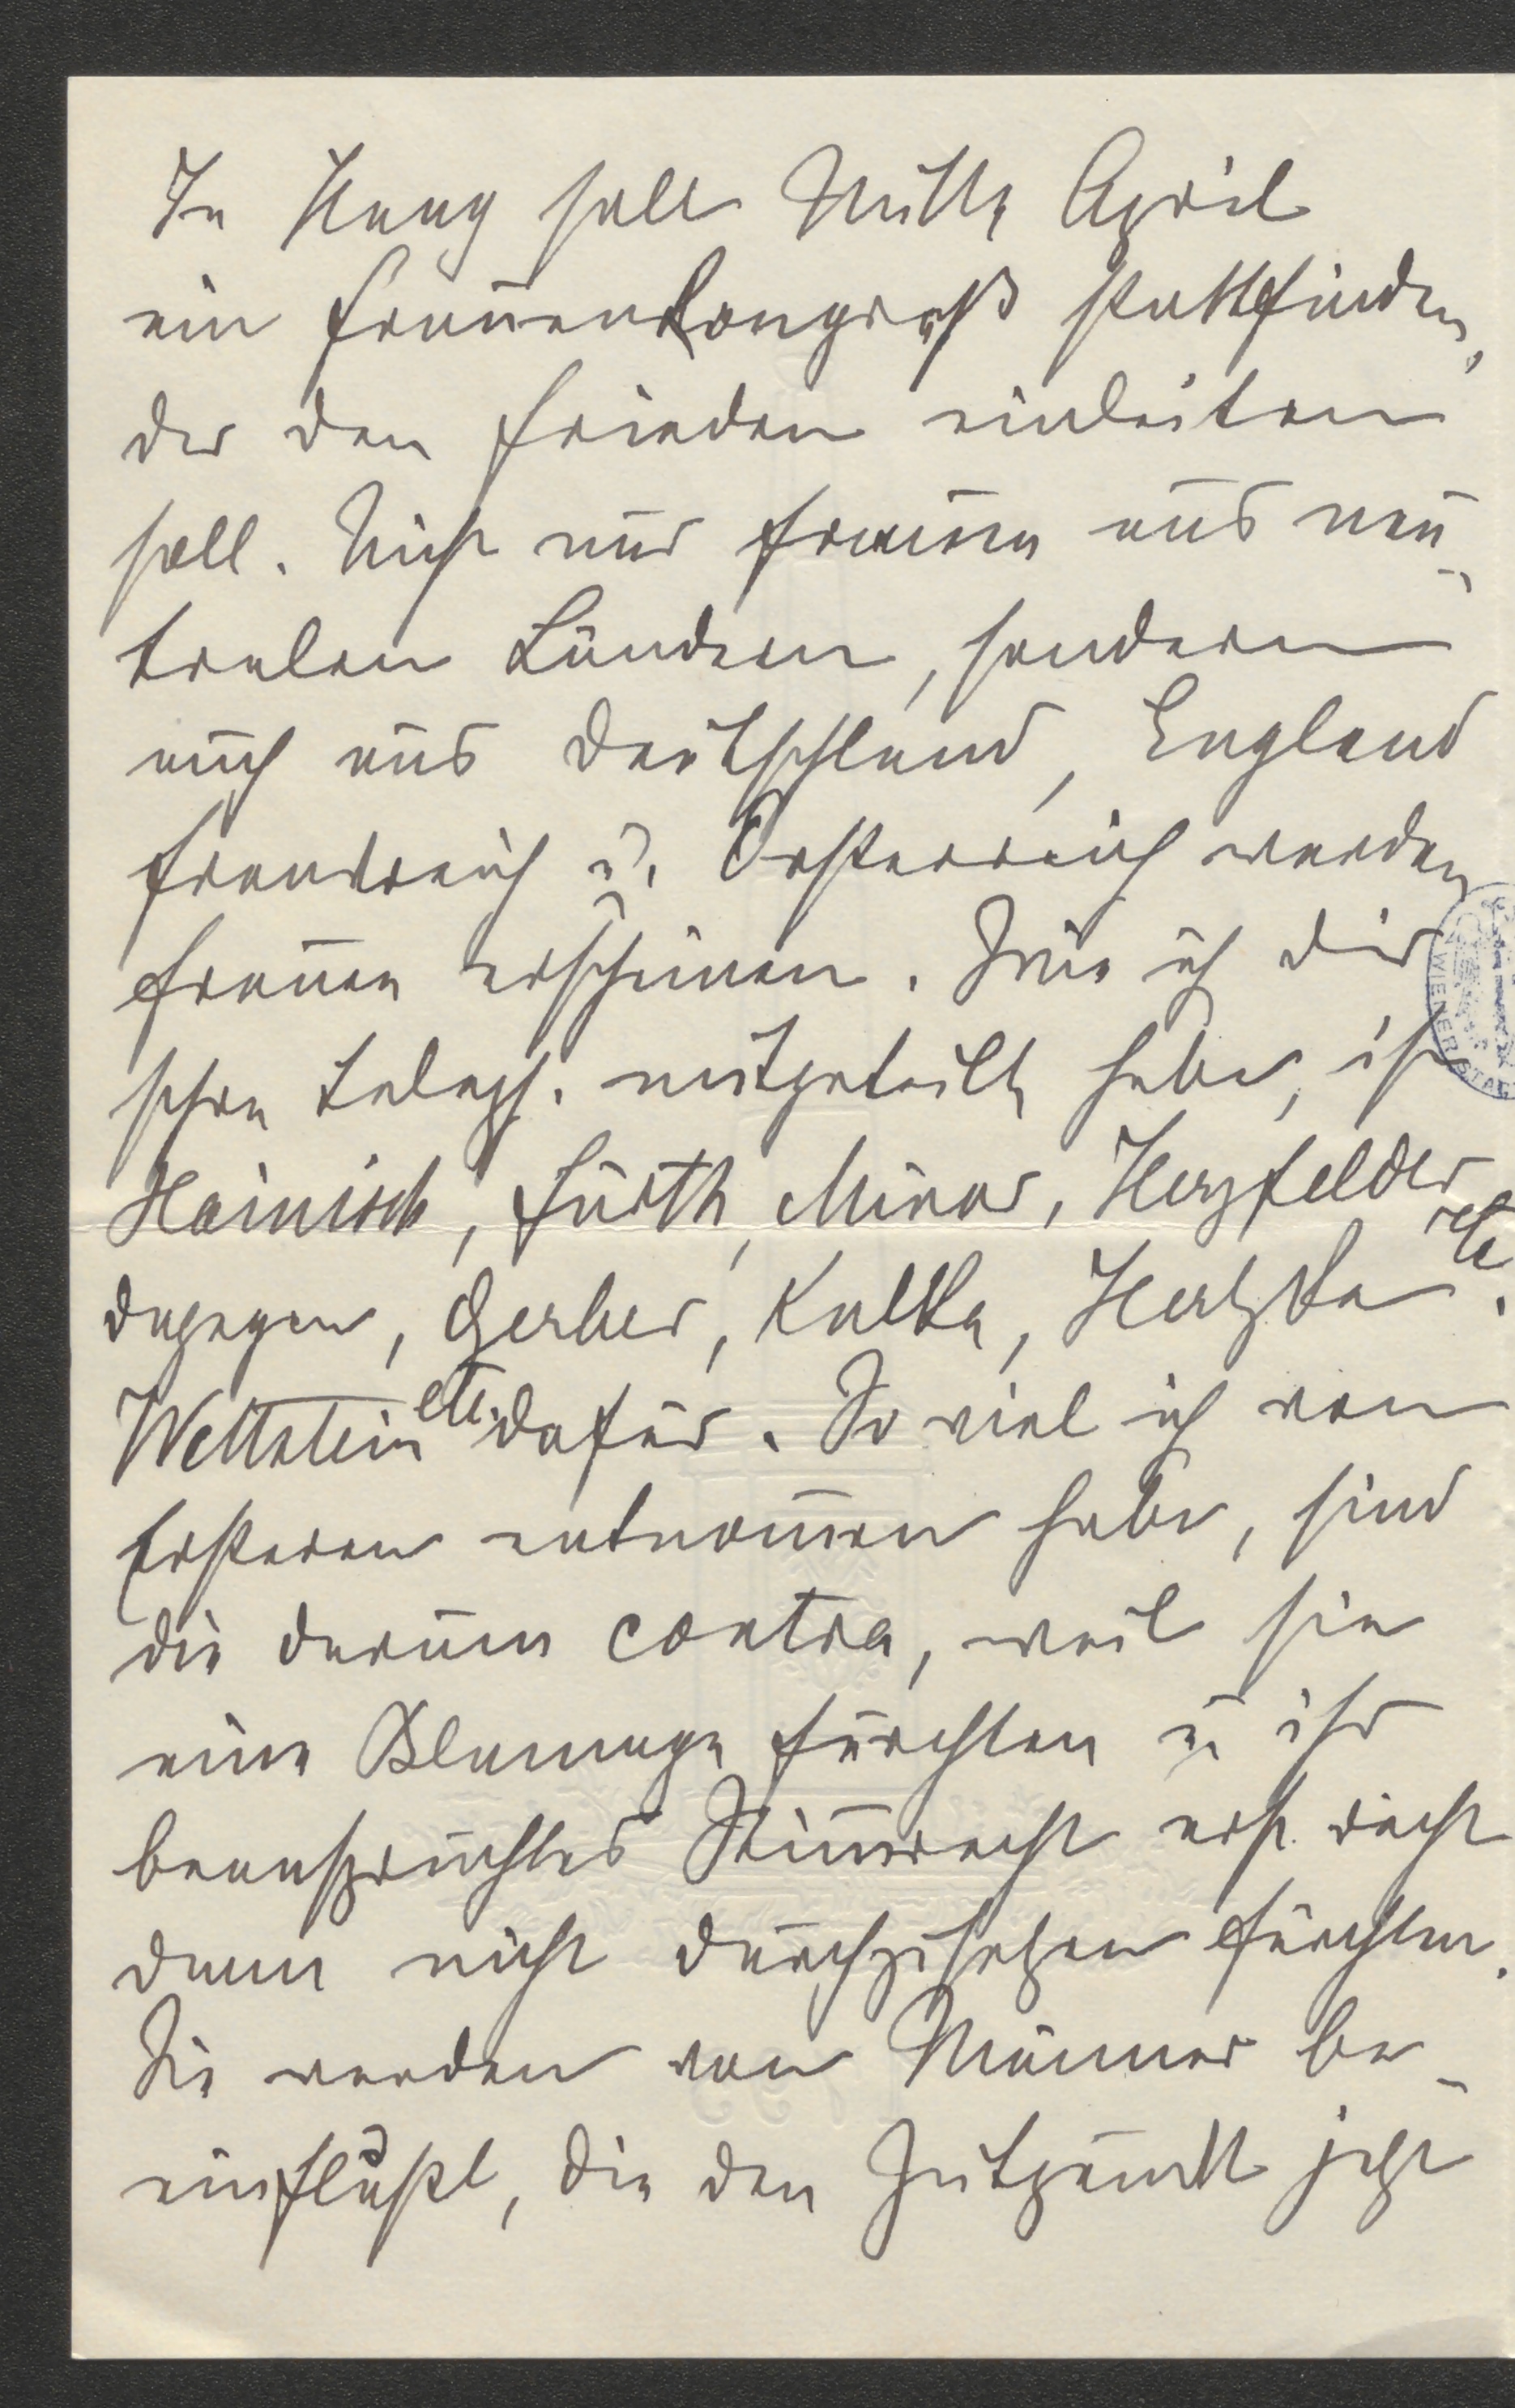 In Haag soll Mitte April
ein Frauenkongreß stattfinden,
der den Frieden einleiten
soll. Nicht nur Frauen aus neu-
tralen Ländern, sondern
auch aus Deutschland, England
Frankreich u. Oesterreich werden
Frauen erscheinen. Wie ich dir
schon teleph. mitgeteilt habe, ist
Hainisch, Fürth, Minor, Herzfelder etc
dagegen, Gerber, Kulka, Hertzka.
Wettstein etc. dafür. So viel ich von
Ersteren entnom̄en habe, sind
die darum contra, weil sie
eine Blamage fürchten u ihr
beanspruchtes Stim̄recht erst recht
dann nicht durchzusetzen fürchten.
Sie werden von Männer be-
einflußt, die den Zeitpunkt jetzt
WIENER STA